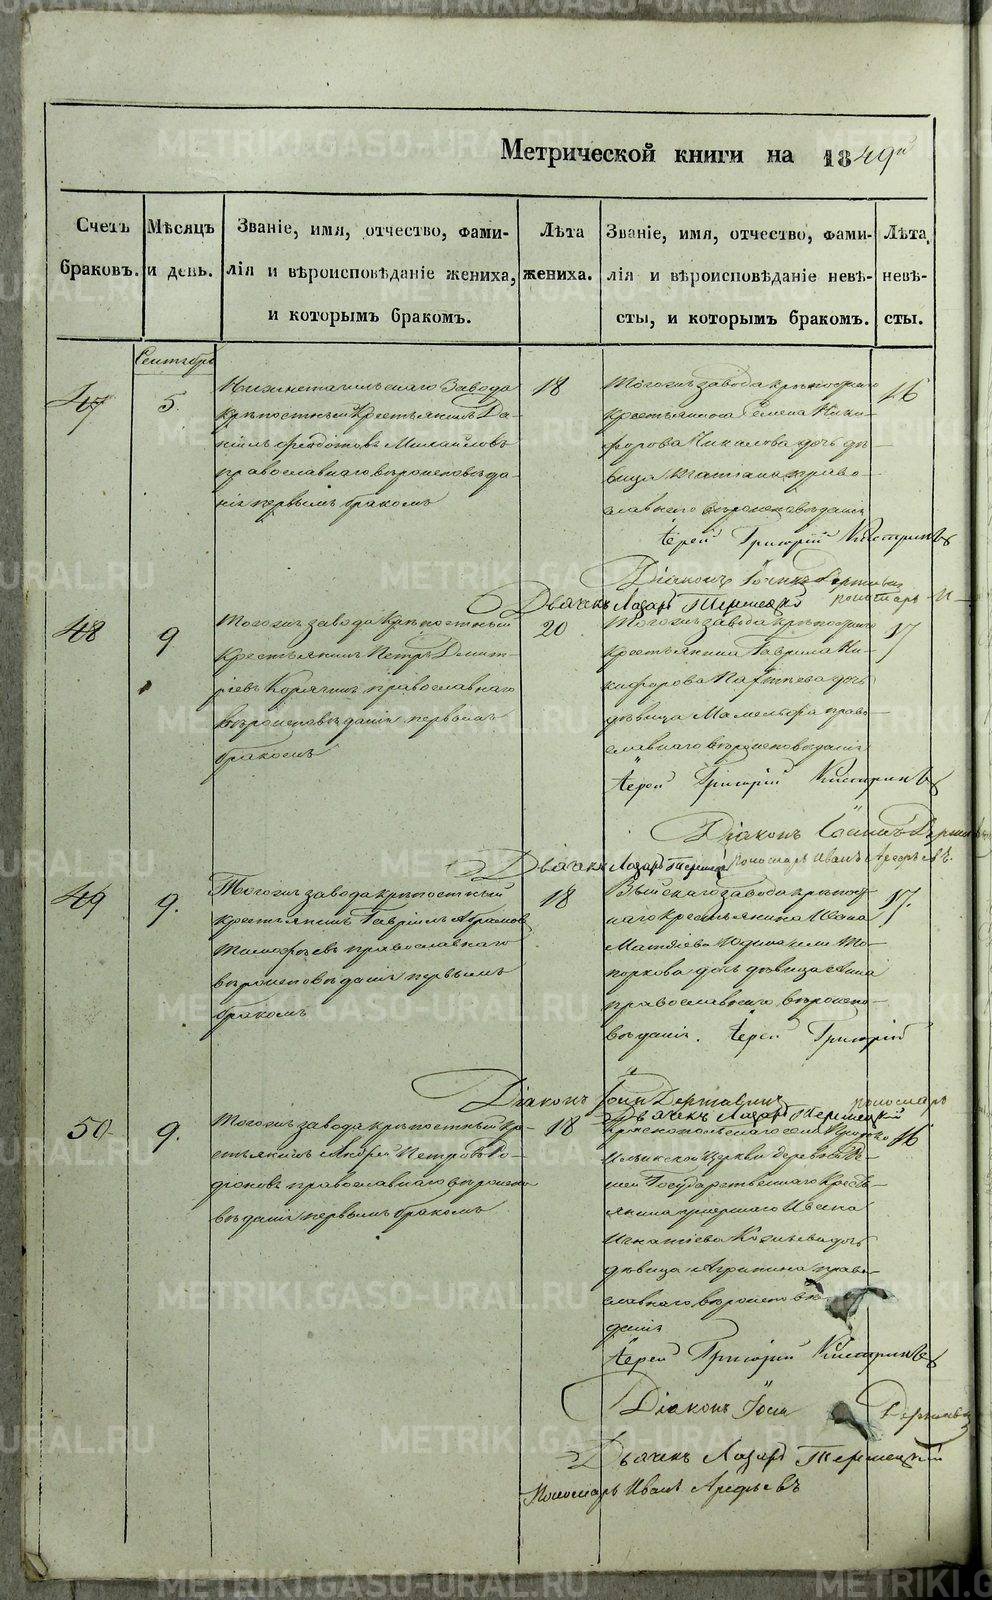 Метрической книги на 1849й
Счетъ браковъ.
Мѣсяцъ и день.
Званіе, имя, отчество, фами-
лія и вѣроисповѣданіе жениха,
и которымъ бракомъ.
Лѣта
жениха.
Званіе, имя, отчество, фами-
лія и вѣроисповѣданіе невѣ-
сты, и которымъ бракомъ.
Лѣта
невѣ-
сты.
Сентябрь
47
5.
Нижнетагильскаго Завода
крѣпостный Крестьянинъ Да-
ніилъ Ѳеодотовъ Михайловъ
православнаго вѣроисповѣда-
нія первымъ бракомъ
18
Тогожъ завода крѣпостнаго
крестьянина Семена Ники-
форова дочь дѣ-
вица Татіана право-
славнаго вѣроисповѣданія
16
Іерей Григорій
Діаконъ Іоаннъ
Дьячекъ Лазарь
пономарь И
48
9
Тогожъ завода Крѣпостный
крестьянинъ Петръ Димит-
ріевъ православнаго
вѣроисповѣданія первымъ
бракомъ
20
Тогожъ завода крѣпостнаго
крестьянина Гаврила Ни-
кифорова дочь
дѣвица Мамельфа право-
славнаго вѣроисповѣданія
17
Іерей Григорій
Діаконъ Іоаннъ
Дьячекъ Лазарь Пономарь Иванъ Арефьевъ.
49
9.
Тогожъ завода крѣпостный
крестьянинъ Гавріилъ Абрамовъ
Тимофѣевъ православнаго
вѣроисповѣданія первымъ
бракомъ
18
Выйскаго завода крѣпост-
наго крестьянина Ивана
Матвіева То-
поркова дочь дѣвица Анна
православнаго вѣроиспо-
вѣданія. Іерей Григорій
17.
Діаконъ Іоан Державинъ пономарь
Дьячекъ Лазарь
50
9.
Тогожъ завода крѣпостный кре-
стьянинъ Андрей Петровъ Ро-
діоновъ православнаго вѣроиспо-
вѣданія первымъ бракомъ
18
села
церкви деревни
Государственнаго Кресть-
янина умершаго Ивана
Игнатіева дочь
дѣвица Агрипина право-
славнаго вѣроисповѣ-
данія
16
Іерей Григорій
Діаконъ Іоан Державинъ
Дьячекъ Лазарь
Пономарь Иванъ Арефьевъ
METRIKI.GASO-URAL.RU